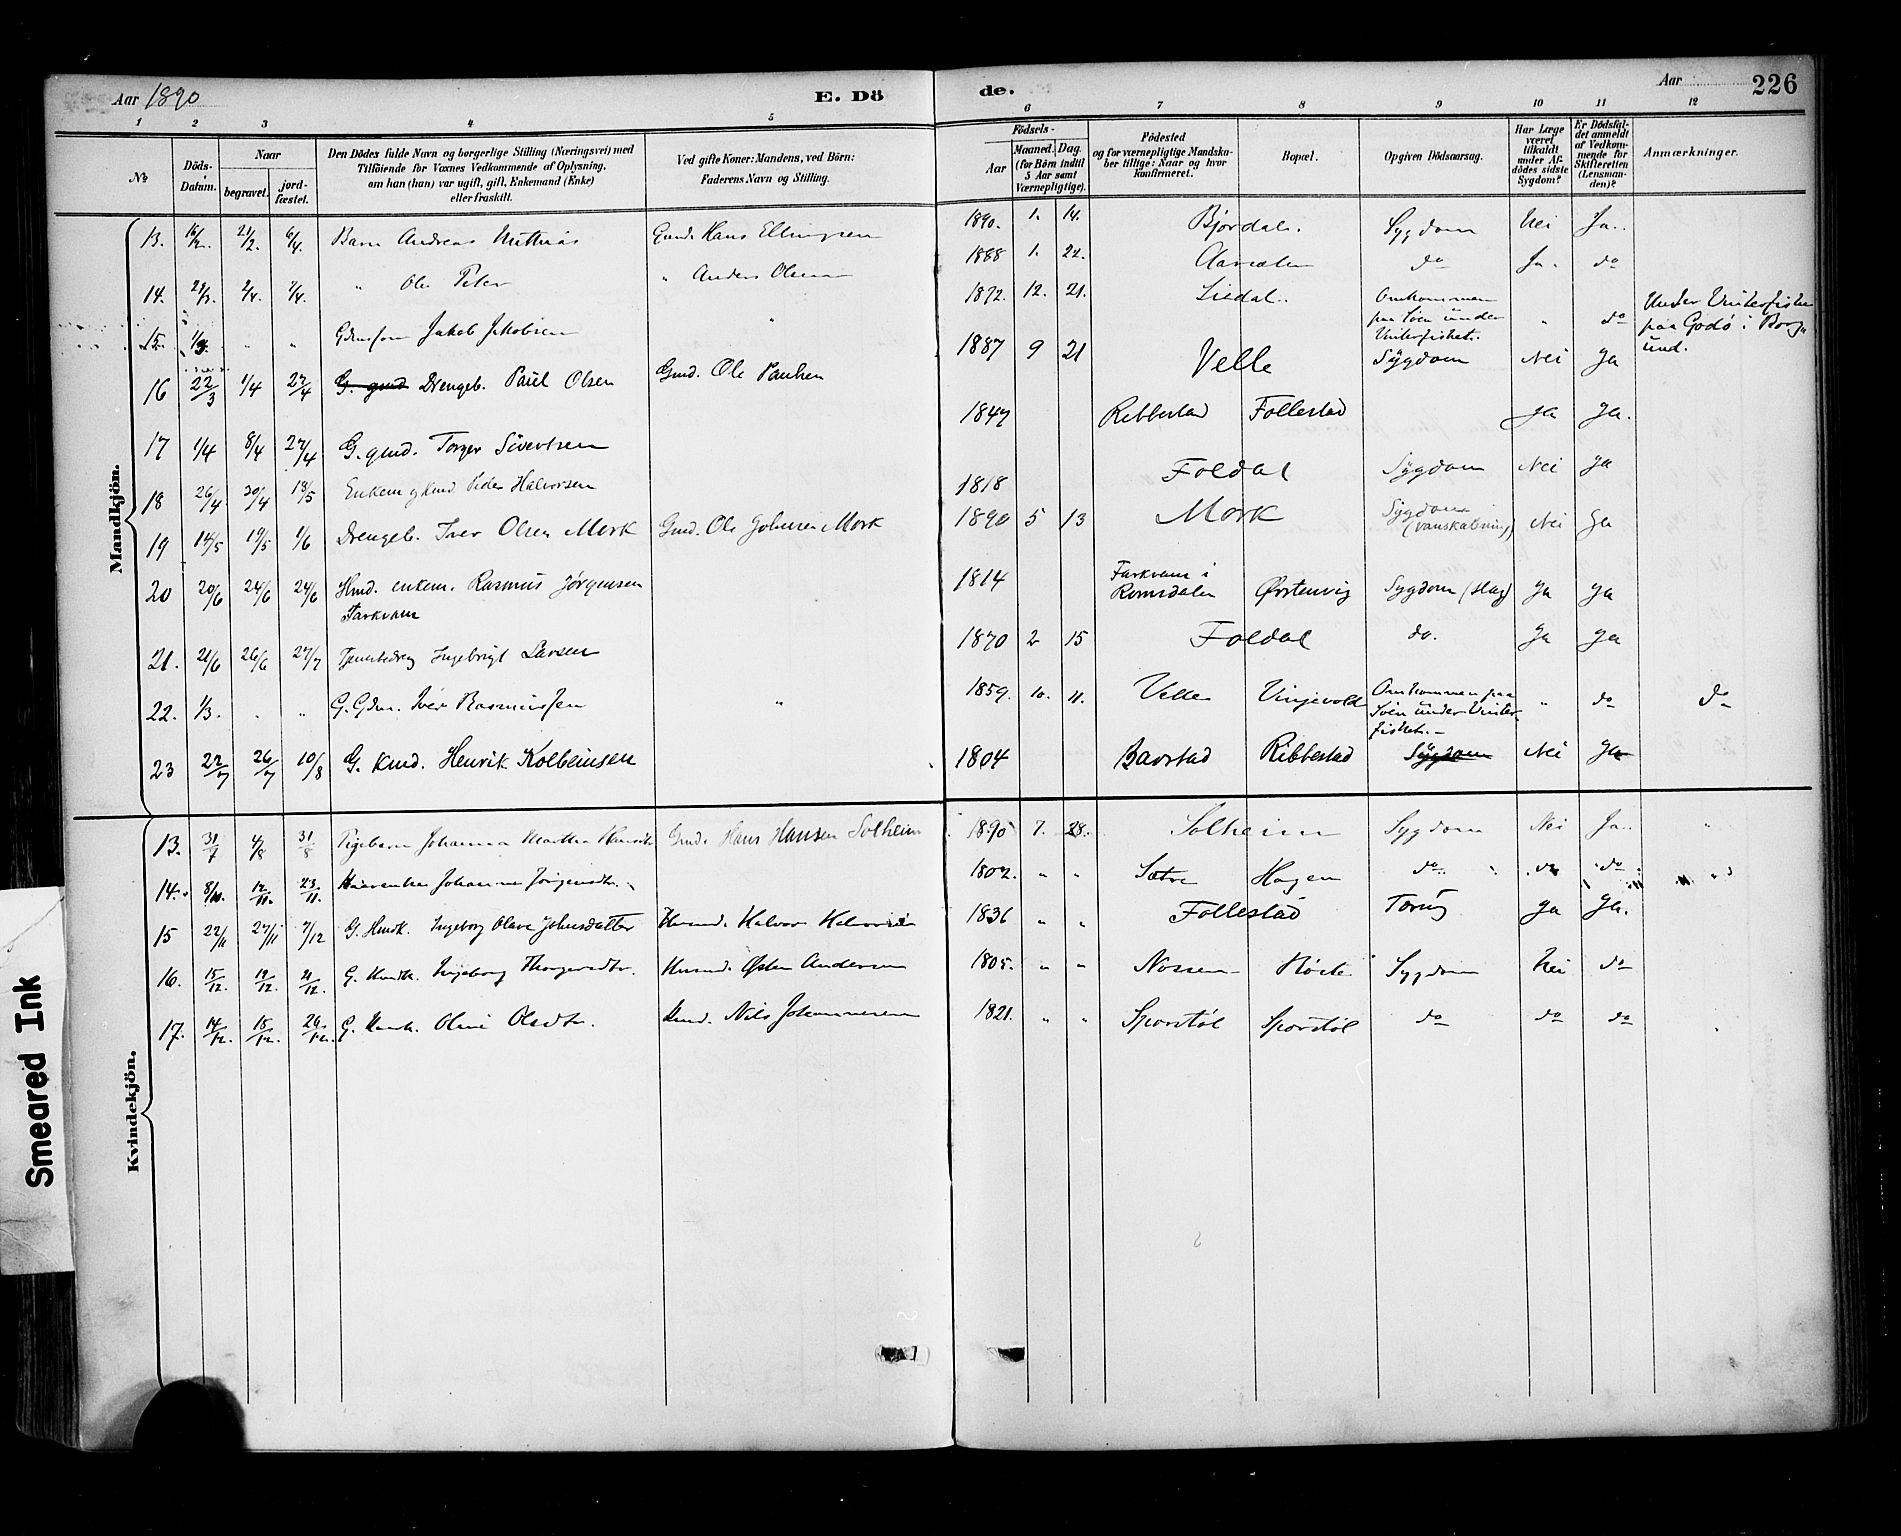 Aar 1890
E. Dö
de.
Aar
226
1 2 3 4 5 6 7 8 9 10 11 12
№
Döds-
Datum.
Naar
begravet.
jord-
fæstet.
Den Dödes fulde Navn og borgerlige Stilling (Næringsvei) med
Tilföiende for Voxnes Vedkommende af Oplysning,
om han (hun) var ugift, gift, Enkemand (Enke)
eller fraskilt.
Ved gifte Koner: Mandens, ved Börn:
Faderens Navn og Stilling.
Födsels-
Aar
Maaned. Dag.
(for Börn indtil
5 Aar samt
Værnepligtige).
Födested
og for værnepligtige Mandska-
ber tillige: Naar og hvor
konfirmeret.
Bopæl.
Opgiven Dödsaarsag.
Har Læge
været
tilkaldt
under Af-
dödes sidste
Sygdom?
Er Dödsfal-
det anmeldt
af Vedkom-
mende for
Skifteretten
(Lensman-
den)?
Anmærkninger.
Mandkjön.
13. 16/2. 21/2. 6/4. Barn Andreas Gmd. Hans Ellingsen 1890. 1. 14. Bjørdal. Sygdom Nei Ja.
14. 2/4. 7/4. " Ole Peter " Anders Olsen 1888 1. 22. do Ja. do
15. 1/3. " " Jakob Jakobsen " 1872. 12. 21. Omkommen
paa Søen under
Vinterfisket. " do Under Vinterfisket
paa Godø i Borg-
und.
16 22/3 1/4 27/4 G. gmd Drengeb. Paul Olsen Gmd. Ole Paulsen 1887 9 21 Velle Sygdom Nei Ja
17 1/4 8/4 27/4 G. gmd. Torger Sivertsen 1847 Ribbestad Follestad Ja Ja.
18 26/4 30/4 18/5 Enkem Peder Halvorsen 1818 Foldal Sygdom Nei Ja
19 14/5 19/5 1/6 Drengeb. Iver Olsen Mork Gmd. Ole Johnsen Mork 1890 5 13 Mork Sygdom
Nei Ja
20 20/6 24/6 24/6 Hmd. enkem. Rasmus Jörgensen
Farkvam 1814 Farkvam i
Romsdalen Ørstenvig Sygdom (Slag) Ja Ja
21. 21/6 26/6 27/7 Ingebrigt Larsen 1870 2 15 Foldal do. Ja Ja
22. 1/3. " " G. Gdm. Iver Rasmussen " 1859. 10. 11. Velle Vinjevold Omkommen paa
Søen under Vinter-
fisket. " do do
23 22/7 26/7 10/8 G. Kmd. Henrik Kolbeinsen 1804 Bavstad Ribbestad Sygdom Nei Ja
Kvindekjön.
13. 31/7 4/8 31/8 Pigebarn Johanna Martha Gmd. Hans Hansen Solheim 1890 7. 28. Solheim Sygdom Nei Ja. "
14. 8/11. 12/11. 23/11. Johanne Jørgensdtr. 1802. " " Sætre Hagen do. do do
15 22/11 27/11 7/12 G. Hmdk. Ingeborg Olave Johnsdatter Halvor 1836 " " Follestad Ja Ja.
16. 15/12. 19/12. 21/12. G. Ingeborg Thorgersdtr. Husmd. Østen Andersen 1805. " " Sygdom Nei do
17. 14/12. 18/12. 26/12. G. Oline Olsdtr. Kmd. Nils Johannesen 1821. " " Sporstøl Sporstøl do do do
Smeared Ink